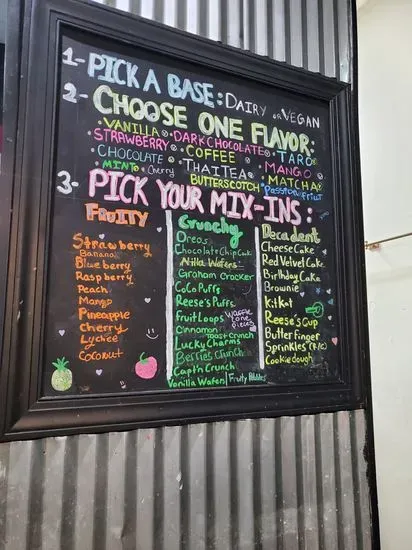 1- PICK A BASE: DAIRY or VEGAN
2- CHOOSE ONE FLAVOR:
• VANILLA • DARK CHOCOLATE • TARO
STRAWBERRY • COFFEE • MANGO
• CHOCOLATE • THAI TEA • MATCHA
MINT • Cherry BUTTERSCOTCH Passion fruit
3- PICK YOUR MIX-INS:
FRUITY
Strawberry
Banana
Blueberry
Raspberry
Peach
Mango
Pineapple
Cherry
Lychee
Coconut
Crunchy
Oreos
Chocolate Chip Cook
Nilla Wafers
Graham Cracker
CoCo Puffs
Reese's Puffs
Fruit Loops
Waffle Cone pieces
Cinnamon Toast Crunch
Lucky Charms
Berries Crunch
Capt'n Crunch
Vanilla Wafers | Fruity Pebbles
Decadent
Cheese Cake
Red Velvet Cake
Birthday Cake
Brownie
Kitkat
Reese's Cup
Butter finger
Sprinkles (R/C)
Cookie dough